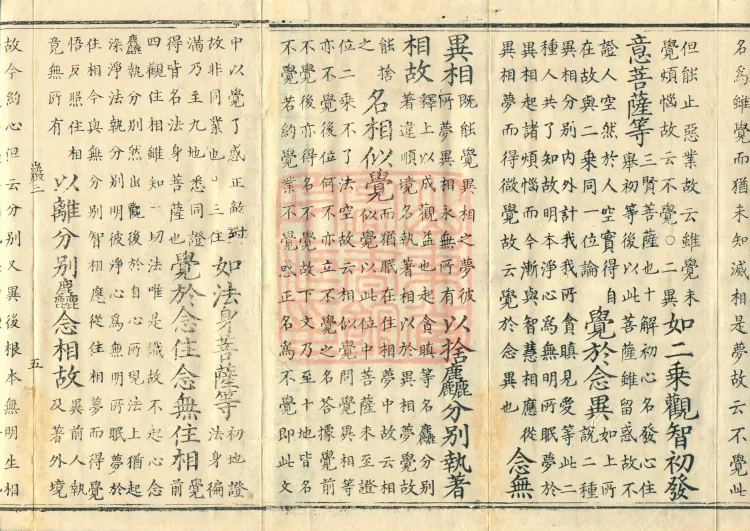 名為雖覺而猶未知滅相是夢故云不覺此
但能止惡業故云雖覺未
覺煩惱故云不覺○二異
如二乘觀智初發
意菩薩等
三賢菩薩也十解初心名發心住
舉初等後以此菩薩雖留惑故不
證人空然於人空實得自
在故與二乘同一位論
覺於念異
如上所
說二種
異相分別內外計我我所貪瞋見愛等此二
種人共了知故明本淨心為無明所眠夢於
異相起諸煩惱而今漸與智慧相應從
異相夢而得微覺故云覺於念異也
念無
異相
既能覺異相之夢彼
所夢異相永無所有
以捨麤分別執著
相故
釋上以成觀益也起貪瞋等名麤分別
著違順境名執著相以於異相夢覺故
能捨
之
名相似覺
而猶眠在住相夢中故云相
似覺以此位中菩薩未至證
位二乘不了法空故云相似覺之問覺異相等
亦不覺後位何不亦立不覺之名答據覺前
不覺後亦得名不覺故下文乃至十地皆名
不覺若約覺業不覺惑正名為不覺即此文
中以覺了惑正敵對
故非同業也○三住
如法身菩薩等
初地證
法身徧
滿乃至九地悉同證
得皆名法身菩薩也
覺於念住念無住相
覺
前
四觀住相雖知一切法唯是識故不起心念
麤執分別然出觀後於自心所現法上猶起
染淨法執分別明彼淨心為無明所眠夢於
住相今與無分別智相應從住相夢而得覺
悟反照住相
竟無所有
以離分別麤念相故
異前人執
及著外境
嚴三
五
故今約心但云分別人異後根本無明生相